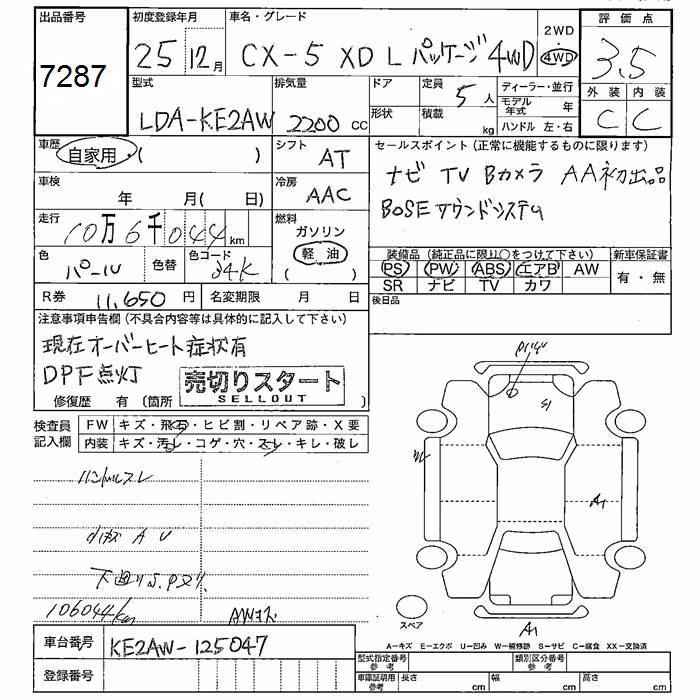 出品番号 初度登録年月 車名・グレード 2WD 評価点
7287 25年 12月 CX-5 XD L パッケージ 4WD 4WD 3.5
型式 排気量 ドア 定員 ディーラー・並行 外装 内装
LDA-KE2AW 2200 cc 5人 モデル年式 年 C C
形状 積載 kg ハンドル 左・右
車歴 自家用・( ) シフト AT セールスポイント (正常に機能するものに限ります)
車検 年 月( 日) 冷房 AAC ナビ TV Bカメラ AA初出品
走行 10万6千044km 燃料 ガソリン BOSEサウンドシステム
軽油 ( )
装備品 (純正品に限り○をつけて下さい) 新車保証書
色 パール 色替 色コード 34K PS PW ABS エアB AW 有・無
SR ナビ TV カワ
R券 11,650 円 名変期限 月 日 後日品
注意事項申告欄 (不具合内容等は具体的に記入して下さい)
現在オーバーヒート症状有
DPF点灯 売切りスタート
SELLOUT
修復歴 有 (箇所 )
検査員記入欄 FW キズ・飛石・ヒビ割・リペア跡・X要
内装 キズ・汚レ・コゲ・穴・スレ・キレ・破レ
ハンドルスレ
小キズ A U
下廻りS.
106044km AWキズ
S1
A1
スペア A1
A-キズ E-エクボ U-凹み W-補修跡 S-サビ C-腐食 XX-交換済
車台番号 KE2AW-125047
型式指定番号 参考 類別区分番号 参考
登録番号 車庫証明用 参考 長さ cm 幅 cm 高さ cm